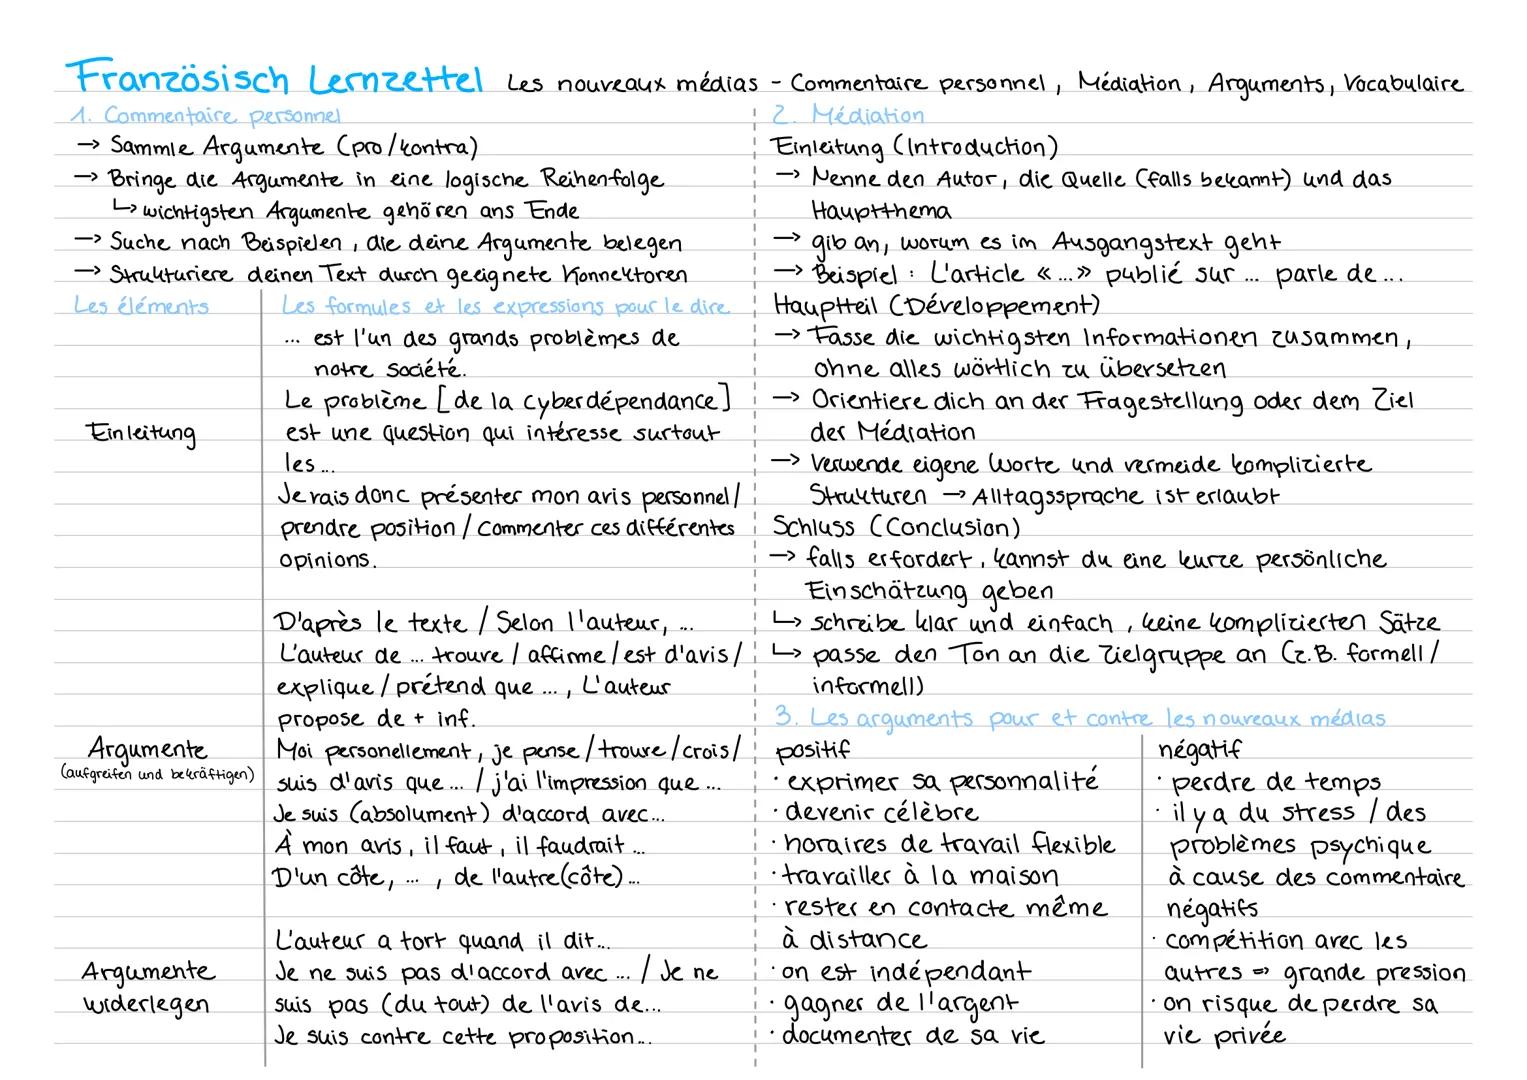 Französisch Lernzettel Les nouveaux médias - Commentaire personnel, Médiation, Arguments, Vocabulaire
1. Commentaire personnel
→ Sammle Argumente (pro/kontra)
→ Bringe die Argumente in eine logische Reihenfolge
↳ wichtigsten Argumente gehören ans Ende
→ Suche nach Beispielen, die deine Argumente belegen
→ Strukturiere deinen Text durch geeignete Konnektoren
Les éléments
Les formules et les expressions pour le dire
Einleitung
... est l'un des grands problèmes de
notre société.
Le problème [de la cyberdépendance]
est une question qui intéresse surtout
les ...
Je vais donc présenter mon avis personnel/
prendre position / Commenter ces différentes
opinions.
Argumente
(aufgreifen und bekräftigen)
D'après le texte / Selon l'auteur, ...
L'auteur de ... trouve / affirme / est d'avis /
explique / prétend que ..., L'auteur
propose de + inf.
Moi personellement, je pense / trouve / crois/
suis d'avis que ... / j'ai l'impression que ...
Je suis (absolument) d'accord avec...
À mon avis, il faut, il faudrait ...
D'un côte, ... , de l'autre (côte) ...
Argumente
widerlegen
L'auteur a tort quand il dit...
Je ne suis pas d'accord avec ... / Je ne
suis pas (du tout) de l'avis de...
Je suis contre cette proposition...
2. Médiation
Einleitung (Introduction)
→ Nenne den Autor, die Quelle (falls bekannt) und das
Hauptthema
→ gib an, worum es im Ausgangstext geht
→ Beispiel : L'article «...» publié sur ... parle de ...
Hauptteil (Développement)
→ Fasse die wichtigsten Informationen zusammen,
ohne alles wörtlich zu übersetzen
→ Orientiere dich an der Fragestellung oder dem Ziel
der Médiation
→ Verwende eigene Worte und vermeide komplizierte
Strukturen → Alltagssprache ist erlaubt
Schluss (Conclusion)
→ falls erfordert, kannst du eine kurze persönliche
Einschätzung geben
↳ schreibe klar und einfach, keine komplizierten Sätze
↳ passe den Ton an die Zielgruppe an (z.B. formell /
informell)
3. Les arguments pour et contre les nouveaux médias
positif
· exprimer sa personnalité
· devenir célèbre
· horaires de travail flexible
· travailler à la maison
· rester en contacte même
à distance
· on est indépendant
· gagner de l'argent
· documenter de sa vie
négatif
· perdre de temps
· il y a du stress / des
problèmes psychique
à cause des commentaire
négatifs
· compétition avec les
autres => grande pression
· on risque de perdre sa
vie privée